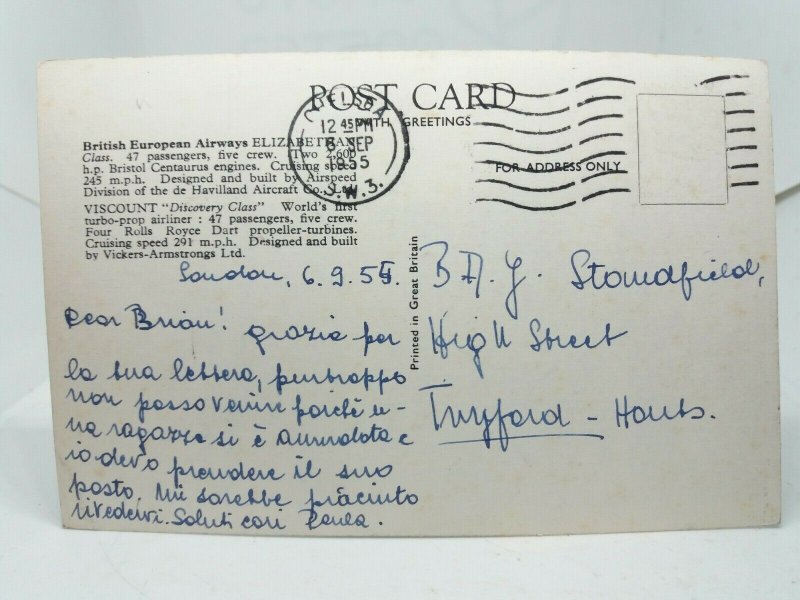 POST CARD
WITH GREETINGS
FOR ADDRESS ONLY
CHELSEA
12 45 PM
6 SEP
1955
S.W.3.
British European Airways ELIZABETHAN
Class. 47 passengers, five crew. Two 2,600
h.p. Bristol Centaurus engines. Cruising speed
245 m.p.h. Designed and built by Airspeed
Division of the de Havilland Aircraft Co. Ltd.
VISCOUNT "Discovery Class" World's first
turbo-prop airliner : 47 passengers, five crew.
Four Rolls Royce Dart propeller-turbines.
Cruising speed 291 m.p.h. Designed and built
by Vickers-Armstrongs Ltd.
London, 6.9.55.
Dear Brian! grazie per
la tua lettera, purtroppo
non posso venire poiché u-
na ragazza si è ammalata e
io devo prendere il suo
posto. Mi sarebbe piaciuto
rivedervi. Saluti cari Paula.
Printed in Great Britain
B.A.J. Standfield,
High Street
Twyford - Hants.